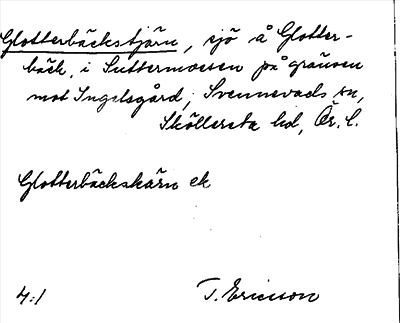 Glotterbäckstjärn, sjö å Glotter-
bäck, i Suttermossen på gränsen
mot Ingelsgård, Svennevads sn,
Sköllersta hd, Ör. l.
Glotterbäckskärn ek
4:1 T. Ericsson